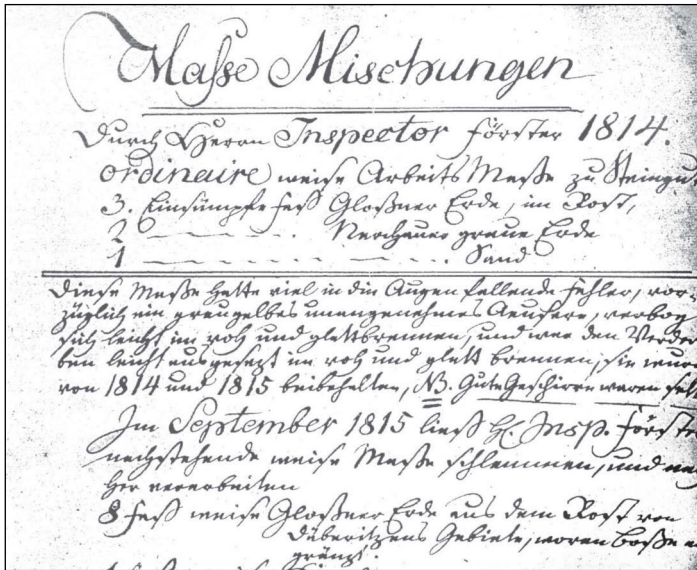 Masse Mischungen
Durch Herrn Inspector Förster 1814.
ordinaire weise Arbeits Masse zu Steingut
3. Einsümpfe Faß Gloßner Erde, im Rost,
2 — — — Nerchauer graue Erde
1 — — — Sand
Diese Masse hatte viel in die Augen fallende Fehler, vor-
züglich ein graugelbes unangenehmes Aeusere, verbog
sich leicht im roh und glattbrennen, und war den Verder
ben leicht ausgesezt im roh und glatt brennen, sie wur
von 1814 und 1815 beibehalten, NB. Gute Geschirre waren
Im September 1815 ließ H. Insp. Förste
nachstehende weise Masse schlemmen, und
her verarbeiten
8 Faß weise Gloßner Erde aus dem Rost von
Däberitzens Gebiete, woran
gränzt.